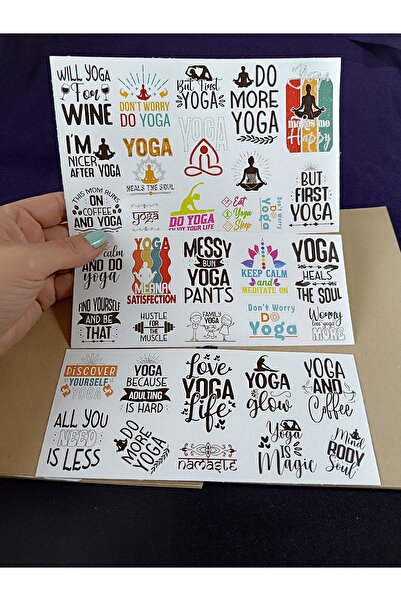 WILL YOGA
For
WINE
DON'T WORRY
DO YOGA
But First
YOGA
DO
MORE
YOGA
Yoga
makes me
Happy
I'M
NICER
AFTER YOGA
YOGA
HEALS THE SOUL
YOGA
BUT
FIRST
YOGA
THIS MOM RUNS
ON
COFFEE
AND YOGA
yoga
DO YOGA
ENJOY YOUR LIFE
Eat
Yoga
Sleep
Don't Worry
Do
Yoga
calm
AND DO
yoga
YOGA
MEANS
SATISFACTION
MESSY
BUN
YOGA
PANTS
KEEP CALM
and
MEDITATE ON
YOGA
HEALS
THE SOUL
FIND YOURSELF
AND BE
THAT
HUSTLE
FOR THE
MUSCLE
FAMILY
YOGA
Don't Worry
DO
Yoga
Worry
less yoga
MORE
DISCOVER
YOURSELF
YOGA
YOGA
BECAUSE
ADULTING
IS HARD
Love
YOGA
Life
YOGA
glow
YOGA
AND
Coffee
ALL YOU
NEED
IS LESS
DO
MORE
YOGA
namaste
Yoga
IS
Magic
Mind
BODY
Soul